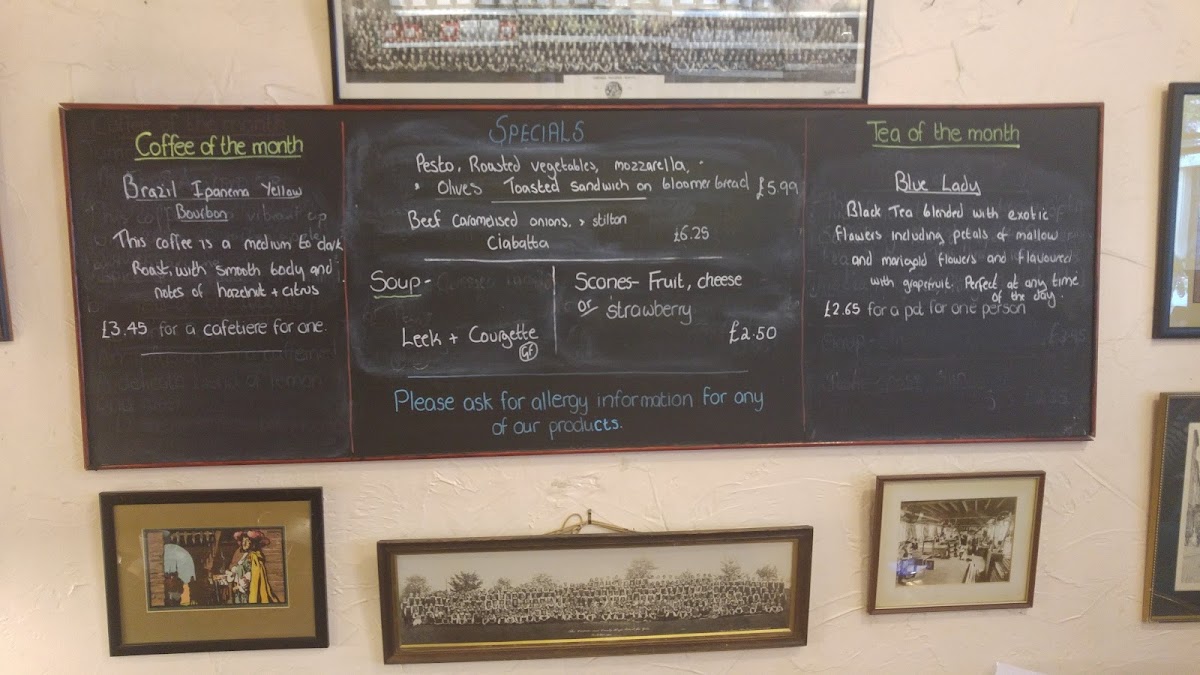 Coffee of the month
Brazil Ipanema Yellow
Bourbon
This coffee is a medium to dark
Roast, with smooth body and
notes of hazelnut + citrus
£3.45 for a cafetiere for one.
SPECIALS
Pesto, Roasted vegetables, mozzarella,
Olives Toasted sandwich on bloomer bread £5.99
Beef Caramelised onions, + stilton
Ciabatta £6.25
Soup-
Leek + Courgette
GF
Scones- Fruit, cheese
or strawberry
£2.50
Please ask for allergy information for any
of our products.
Tea of the month
Blue Lady
Black Tea blended with exotic
flowers including petals of mallow
and marigold flowers and flavoured
with grapefruit. Perfect at any time
of the day.
£2.65 for a pot for one person